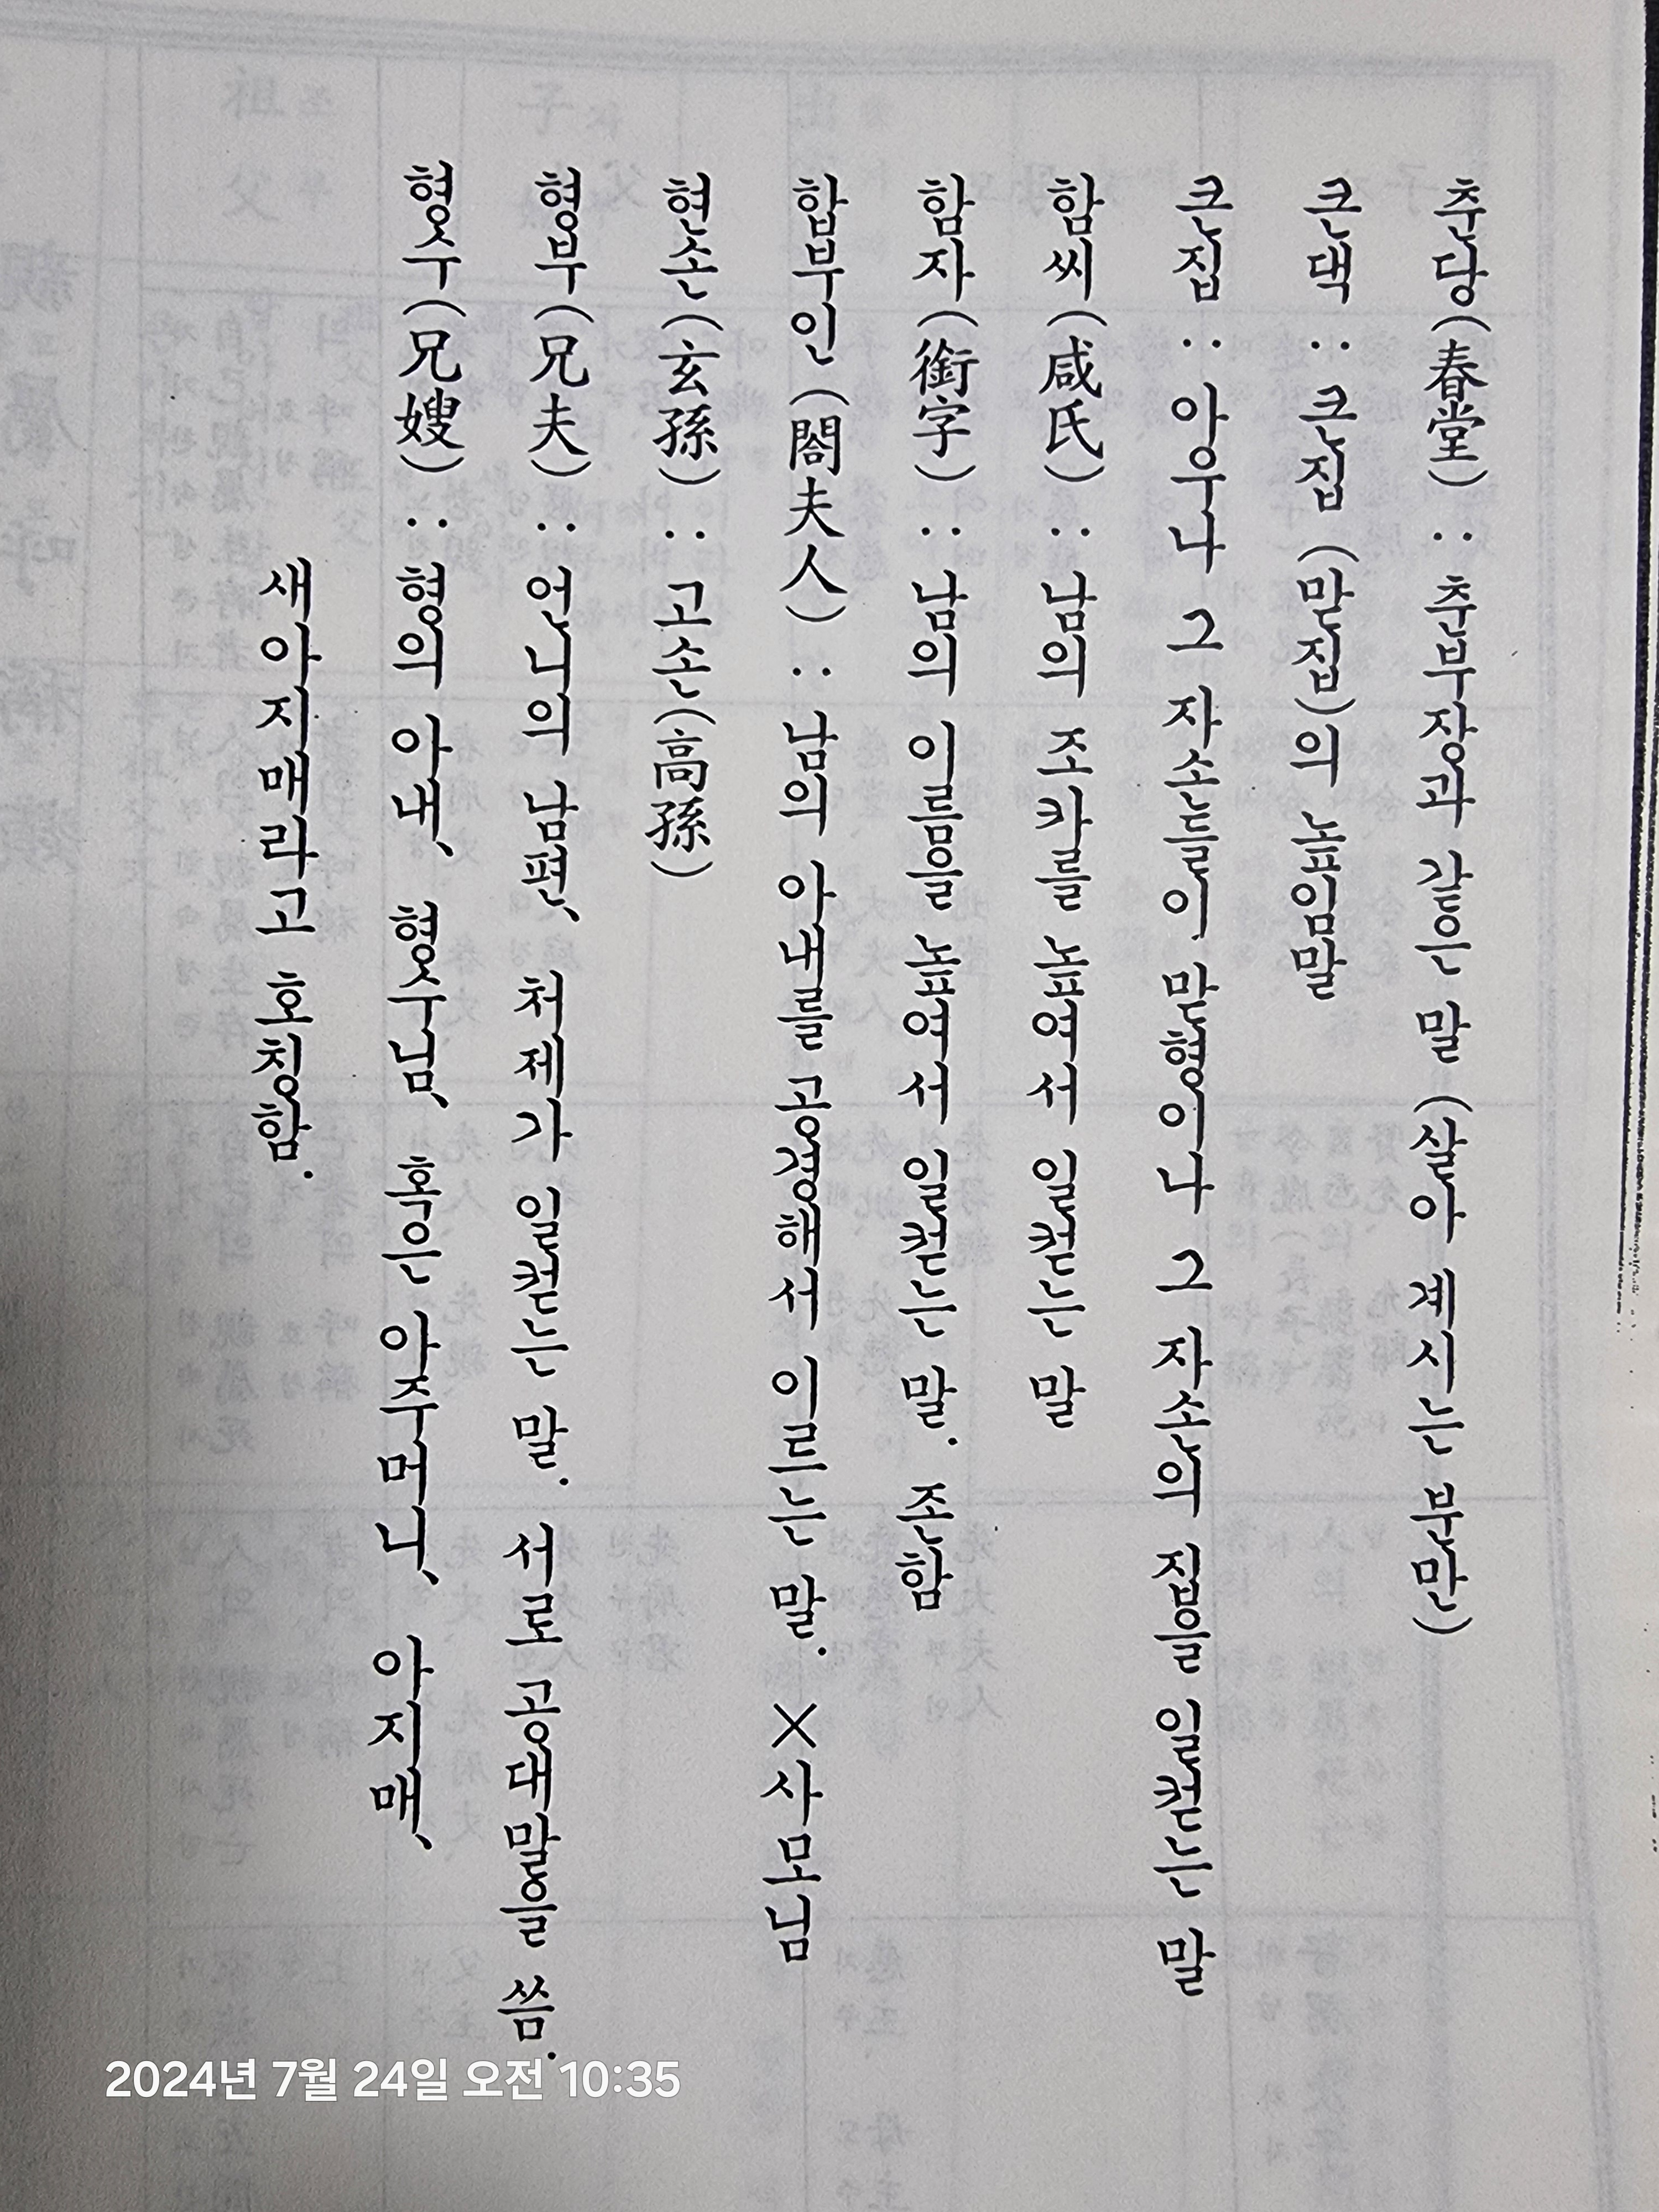 춘당(春堂) : 춘부장과 같은 말 (살아 계시는 분만)
큰댁 : 큰집 (맏집)의 높임말
큰집 : 아우나 그 자손들이 맏형이나 그 자손의 집을 일컫는 말
함씨(咸氏) : 남의 조카를 높여서 일컫는 말
함자(銜字) : 남의 이름을 높여서 일컫는 말. 존함
합부인(閤夫人) : 남의 아내를 공경해서 이르는 말. ×사모님
현손(玄孫) : 고손(高孫)
형부(兄夫) : 언니의 남편, 처제가 일컫는 말. 서로 공대말을 씀.
형수(兄嫂) : 형의 아내, 형수님, 혹은 아주머니, 아지매,
새아지매라고 호칭함.
2024년 7월 24일 오전 10:35